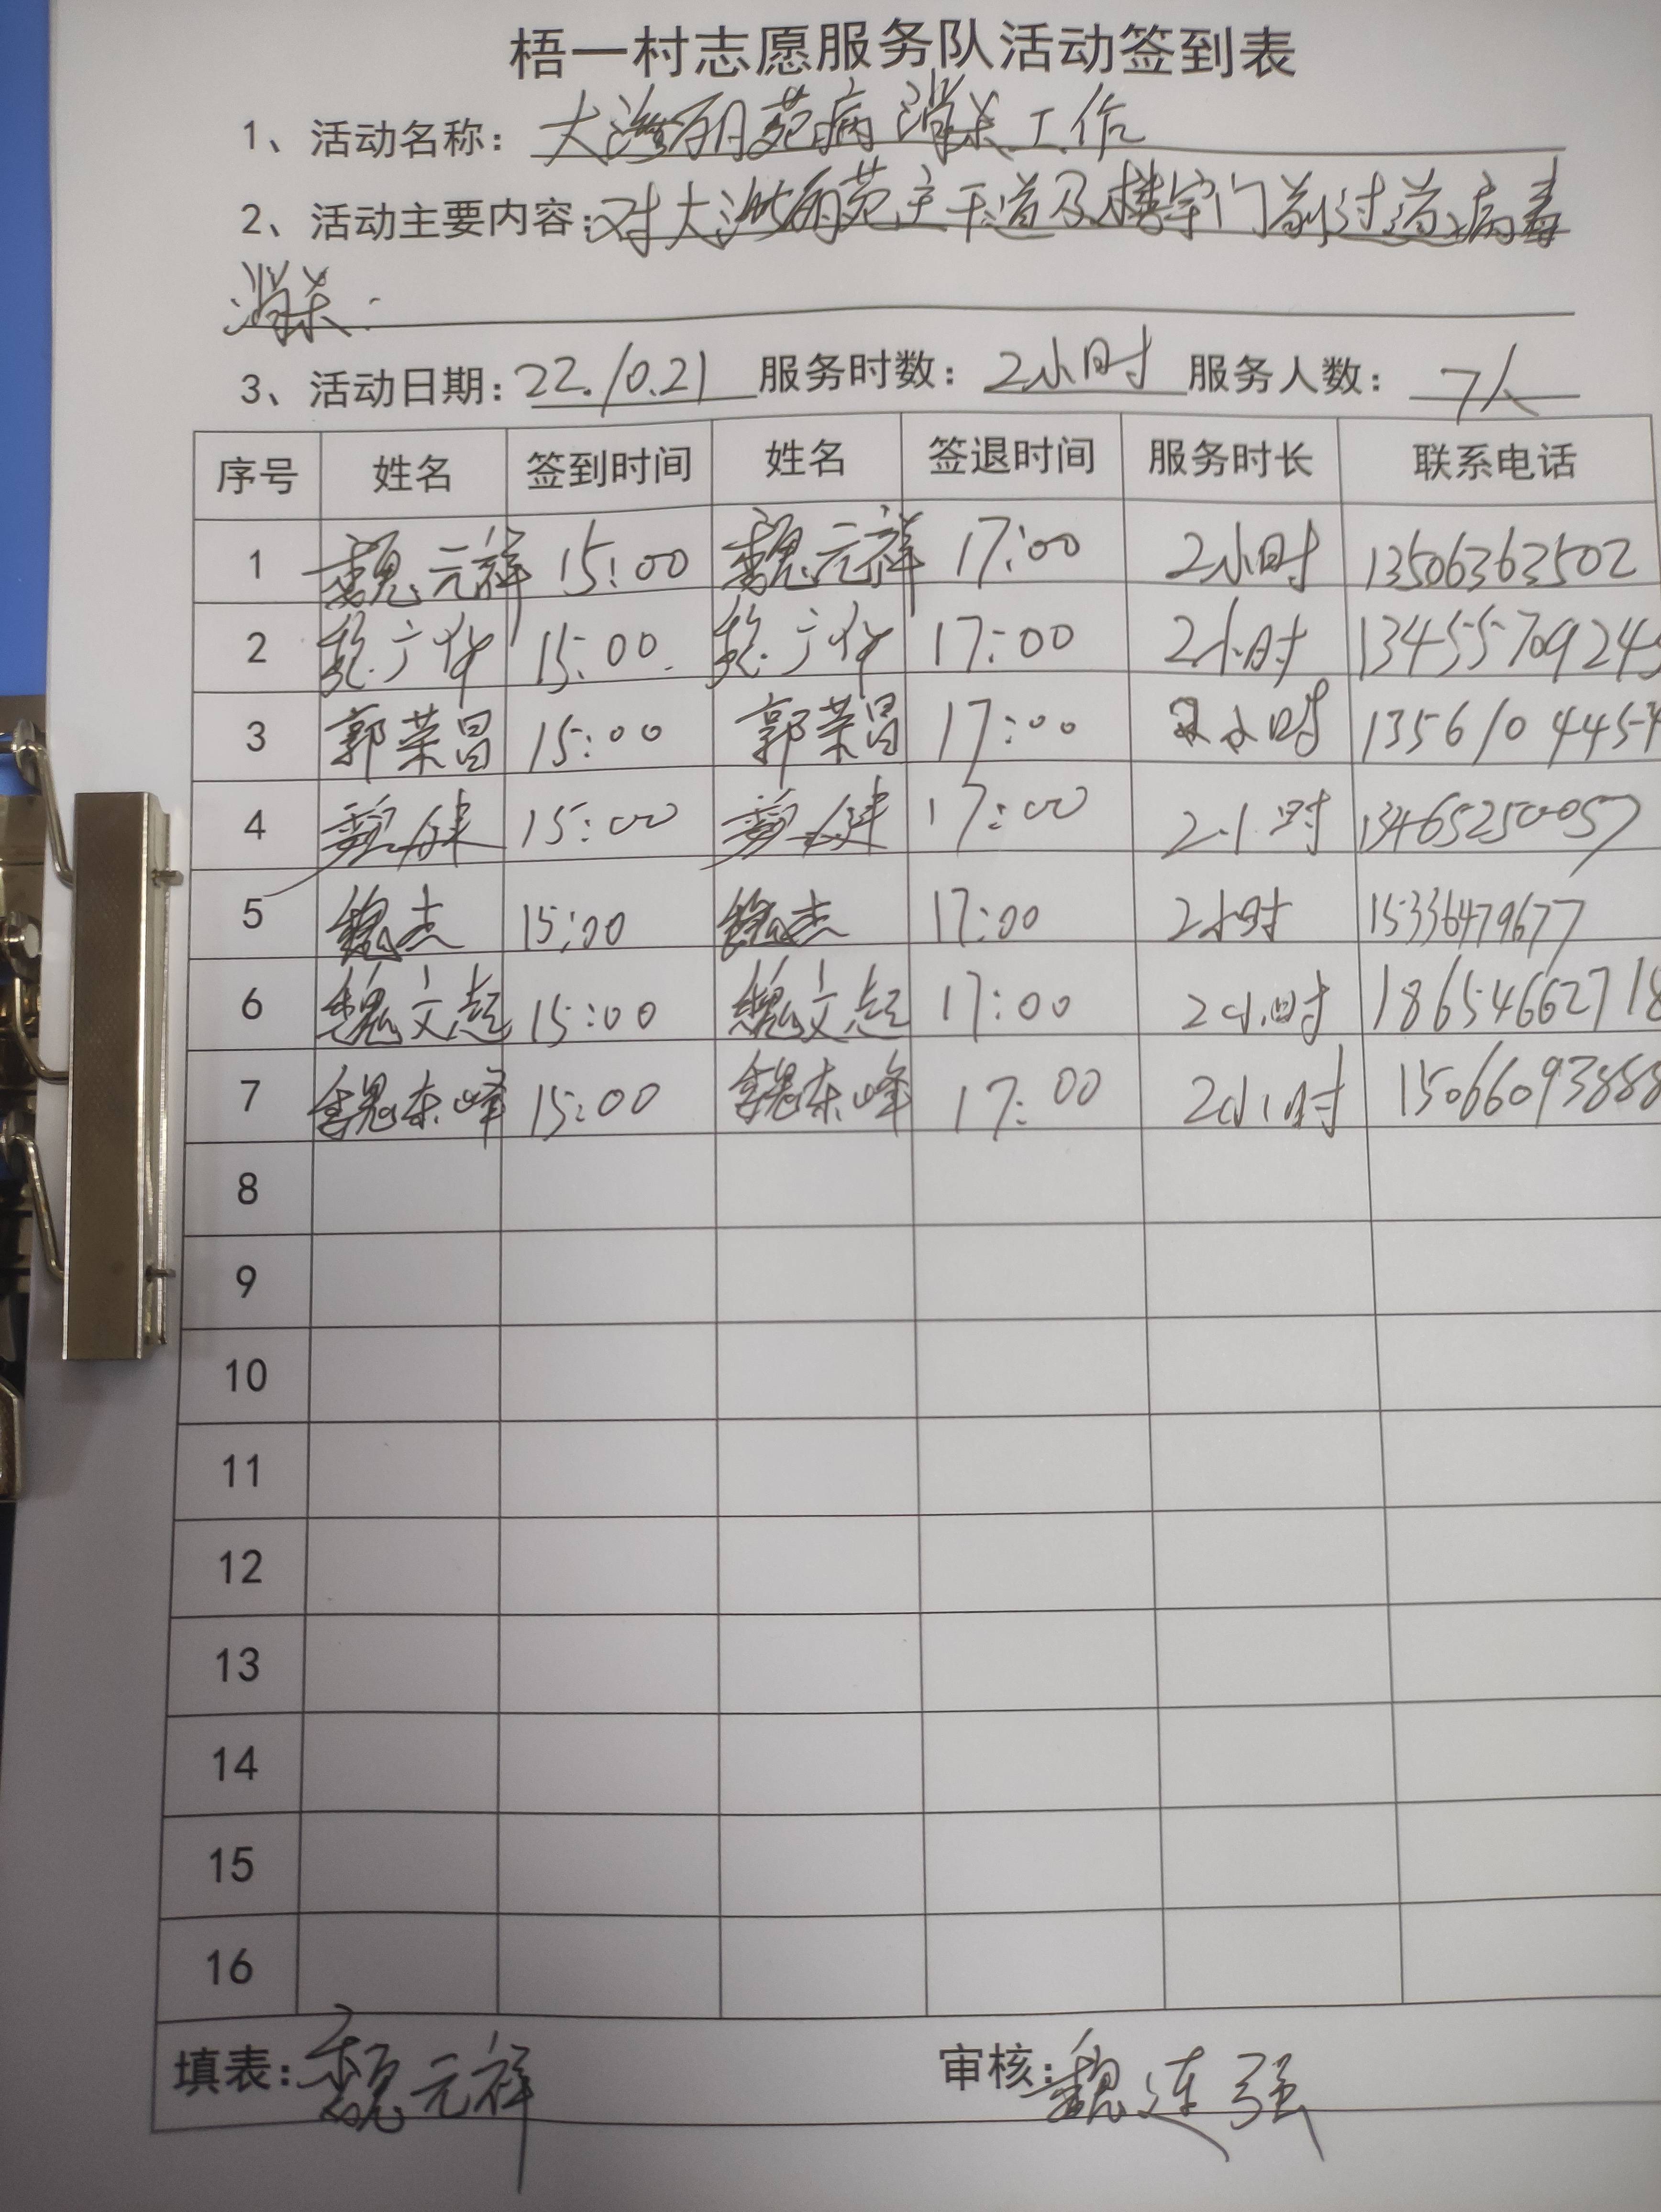 梧一村志愿服务队活动签到表
1、活动名称：大海丽苑病消杀工作
2、活动主要内容：对大海丽苑主干道及楼宇门前过道病毒
消杀.
3、活动日期：22.10.21 服务时数：2小时 服务人数：7人
序号 姓名 签到时间 姓名 签退时间 服务时长 联系电话
1 魏元祥 15:00 魏元祥 17:00 2小时 13506363502
2 15:00. 17:00 2小时
3 郭荣昌 15:00 郭荣昌 17:00 2小时
4 15:00 17:00 2小时 13465250057
5 魏志 15:00 魏志 17:00 2小时 15336479677
6 魏文超 15:00 魏文超 17:00 2小时 18654662718
7 魏东峰 15:00 魏东峰 17:00 2小时 15066093888
8
9
10
11
12
13
14
15
16
填表：魏元祥 审核：魏连强